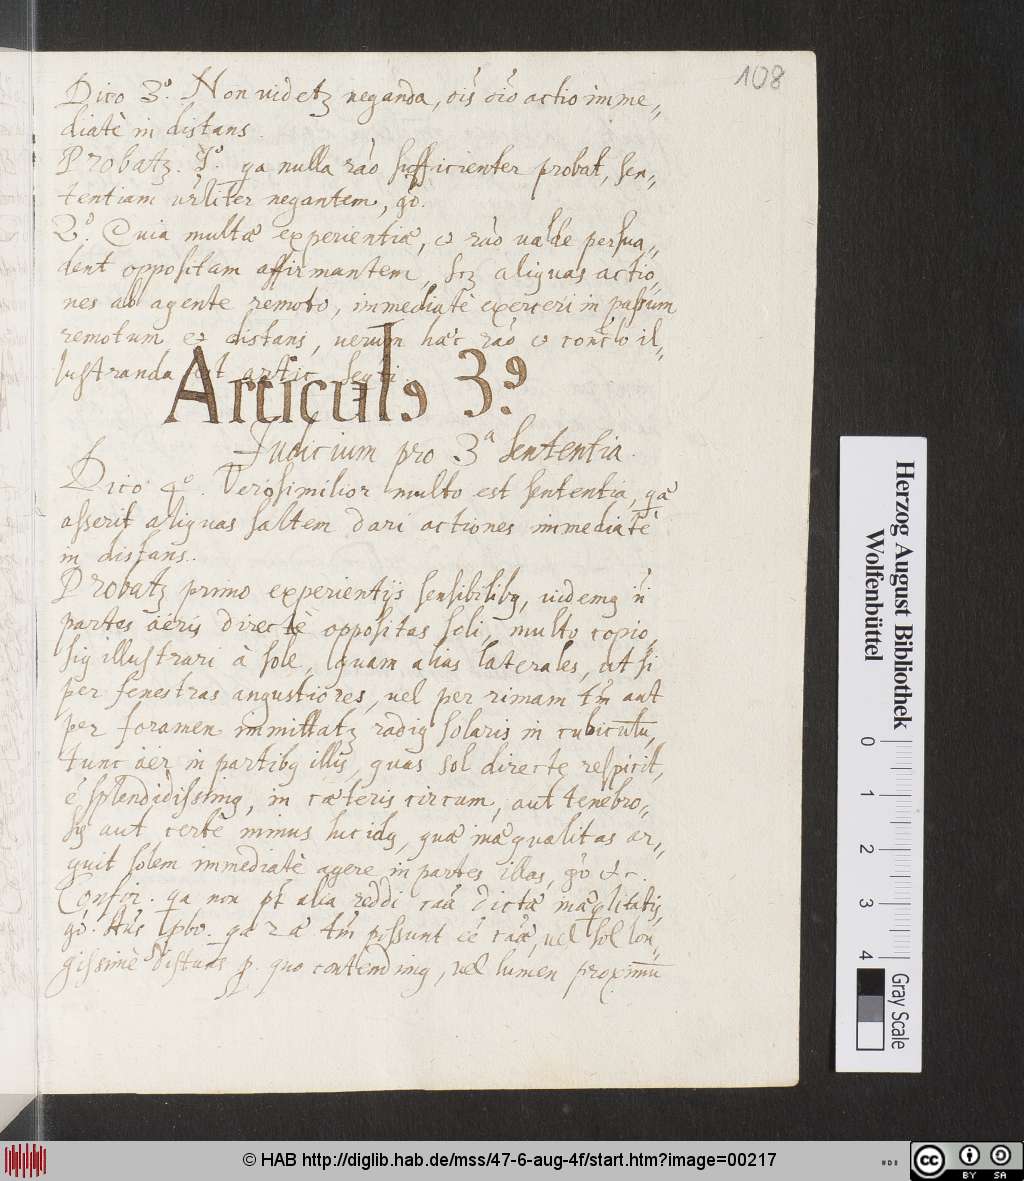 108
Dico 3º. Non videtꝫ neganda, oı̃s oı̃o actio imme„
diatè in distans.
Probatꝫ. Iº. qa nulla rãо sufficienter probat, sen„
tentiam ur̃liter negantem, gº.
2º. Quia multæ experientiæ, et rãо valde persua„
dent oppositam affirmantem, scꝫ aliquas actio„
nes ab agente remoto, immediatè exerceri in passum
remotum et distans, verum hæc rãо et concl̃o il„
lustranda est artic. seqti
Articulꝰ 3ꝰ.
Iudicium pro 3ª sententia.
Dico 4º. Verosimilior multo est sententia, qæ
asserit aliquas saltem dari actiones immediatè
in distans.
Probatꝫ primo experientijs sensibilibꝰ, videmꝰ n̄
partes aëris directè oppositas soli, multo copio„
siꝰ illustrari à sole, quam alias laterales, ut si
per fenestras angustiores, vel per rimam tm̄ aut
per foramen immittatꝫ radiꝰ solaris in cubiculū,
tunc aër in partibꝰ illis, quas sol directe respicit,
ē splendidissimꝰ, in cæteris circum, aut tenebro„
sꝰ aut certè minus lucidꝰ, quæ inæqualitas ar„
guit solem immediatè agere in partes illas, gº &c.
Confir. qa non pt̄ alia reddi cãa dictæ inæqlitatis,
gº. Añs pbo. qa 2æ tm̄ possunt eē cãæ, vel sol lon„
gissimè distans p. quo contendimꝰ, vel lumen proximū
Herzog August Bibliothek
Wolfenbüttel
0 1 2 3 4
Gray Scale
© HAB http://diglib.hab.de/mss/47-6-aug-4f/start.htm?image=00217
cc BY SA